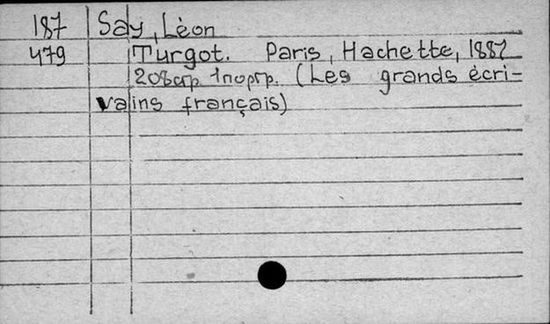 187 Say, Léon
479 Turgot. Paris, Hachette, 1887
208стр. 1портр. (Les grands écri-
vains français)